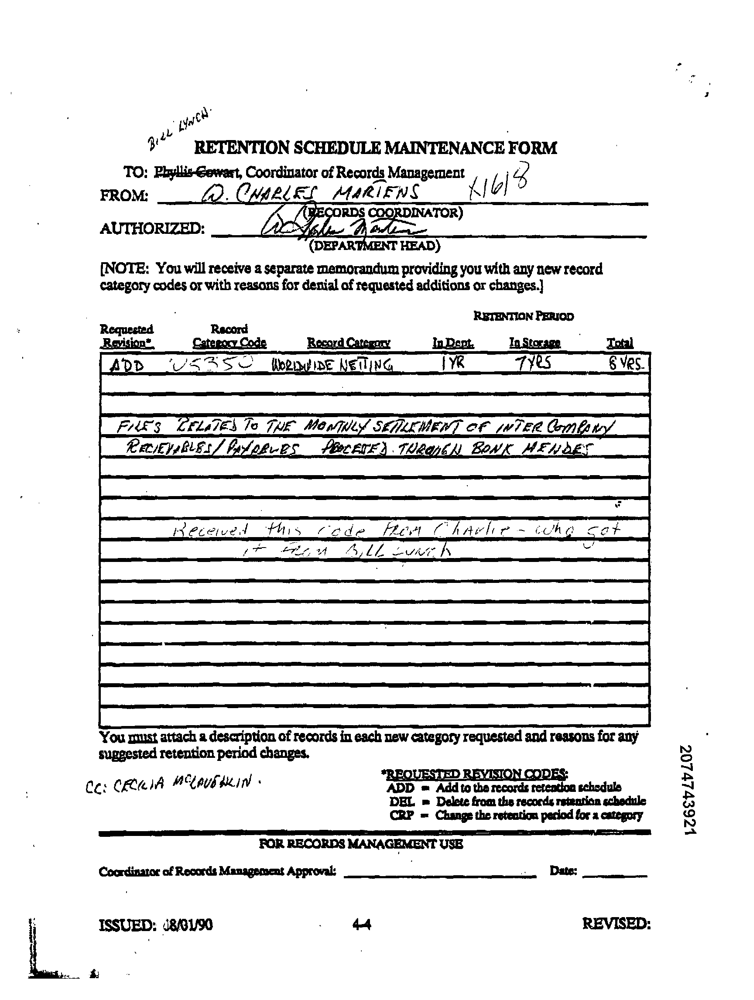 BILL LYNCH.
RETENTION SCHEDULE MAINTENANCE FORM
TO: Phyllis Gowart, Coordinator of Records Management
X1618
FROM: W. CHARLES MARTENS
(RECORDS COORDINATOR)
AUTHORIZED:
(DEPARTMENT HEAD)
[NOTE: You will receive a separate memorandum providing you with any new record
category codes or with reasons for denial of requested additions or changes.]
RETENTION PERIOD
Requested Revision* Record Category Code Record Category In Dept. In Storage Total
ADD U5350 WORLDWIDE NETTING 1 YR 7 YRS 8 YRS.
FILES RELATED TO THE MONTHLY SETTLEMENT OF INTER COMPANY
RECIEVABLES/PAYABLES THROUGH BANK MENDES
Received this code FROM Charlie - who got
it FROM BILL LUNCH
You must attach a description of records in each new category requested and reasons for any
suggested retention period changes.
CC: CECILIA MCLAUGHLIN.
*REQUESTED REVISION CODES:
ADD = Add to the records retention schedule
DEL = Delete from the records retention schedule
CRP = Change the retention period for a category
2074743921
FOR RECORDS MANAGEMENT USE
Coordinator of Records Management Approval: Date:
ISSUED: 08/01/90 4-4 REVISED: